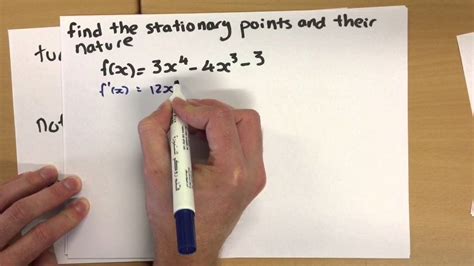 find the stationary points and their
nature
f(x) = 3x⁴ - 4x³ - 3
f'(x) = 12x
tu
no